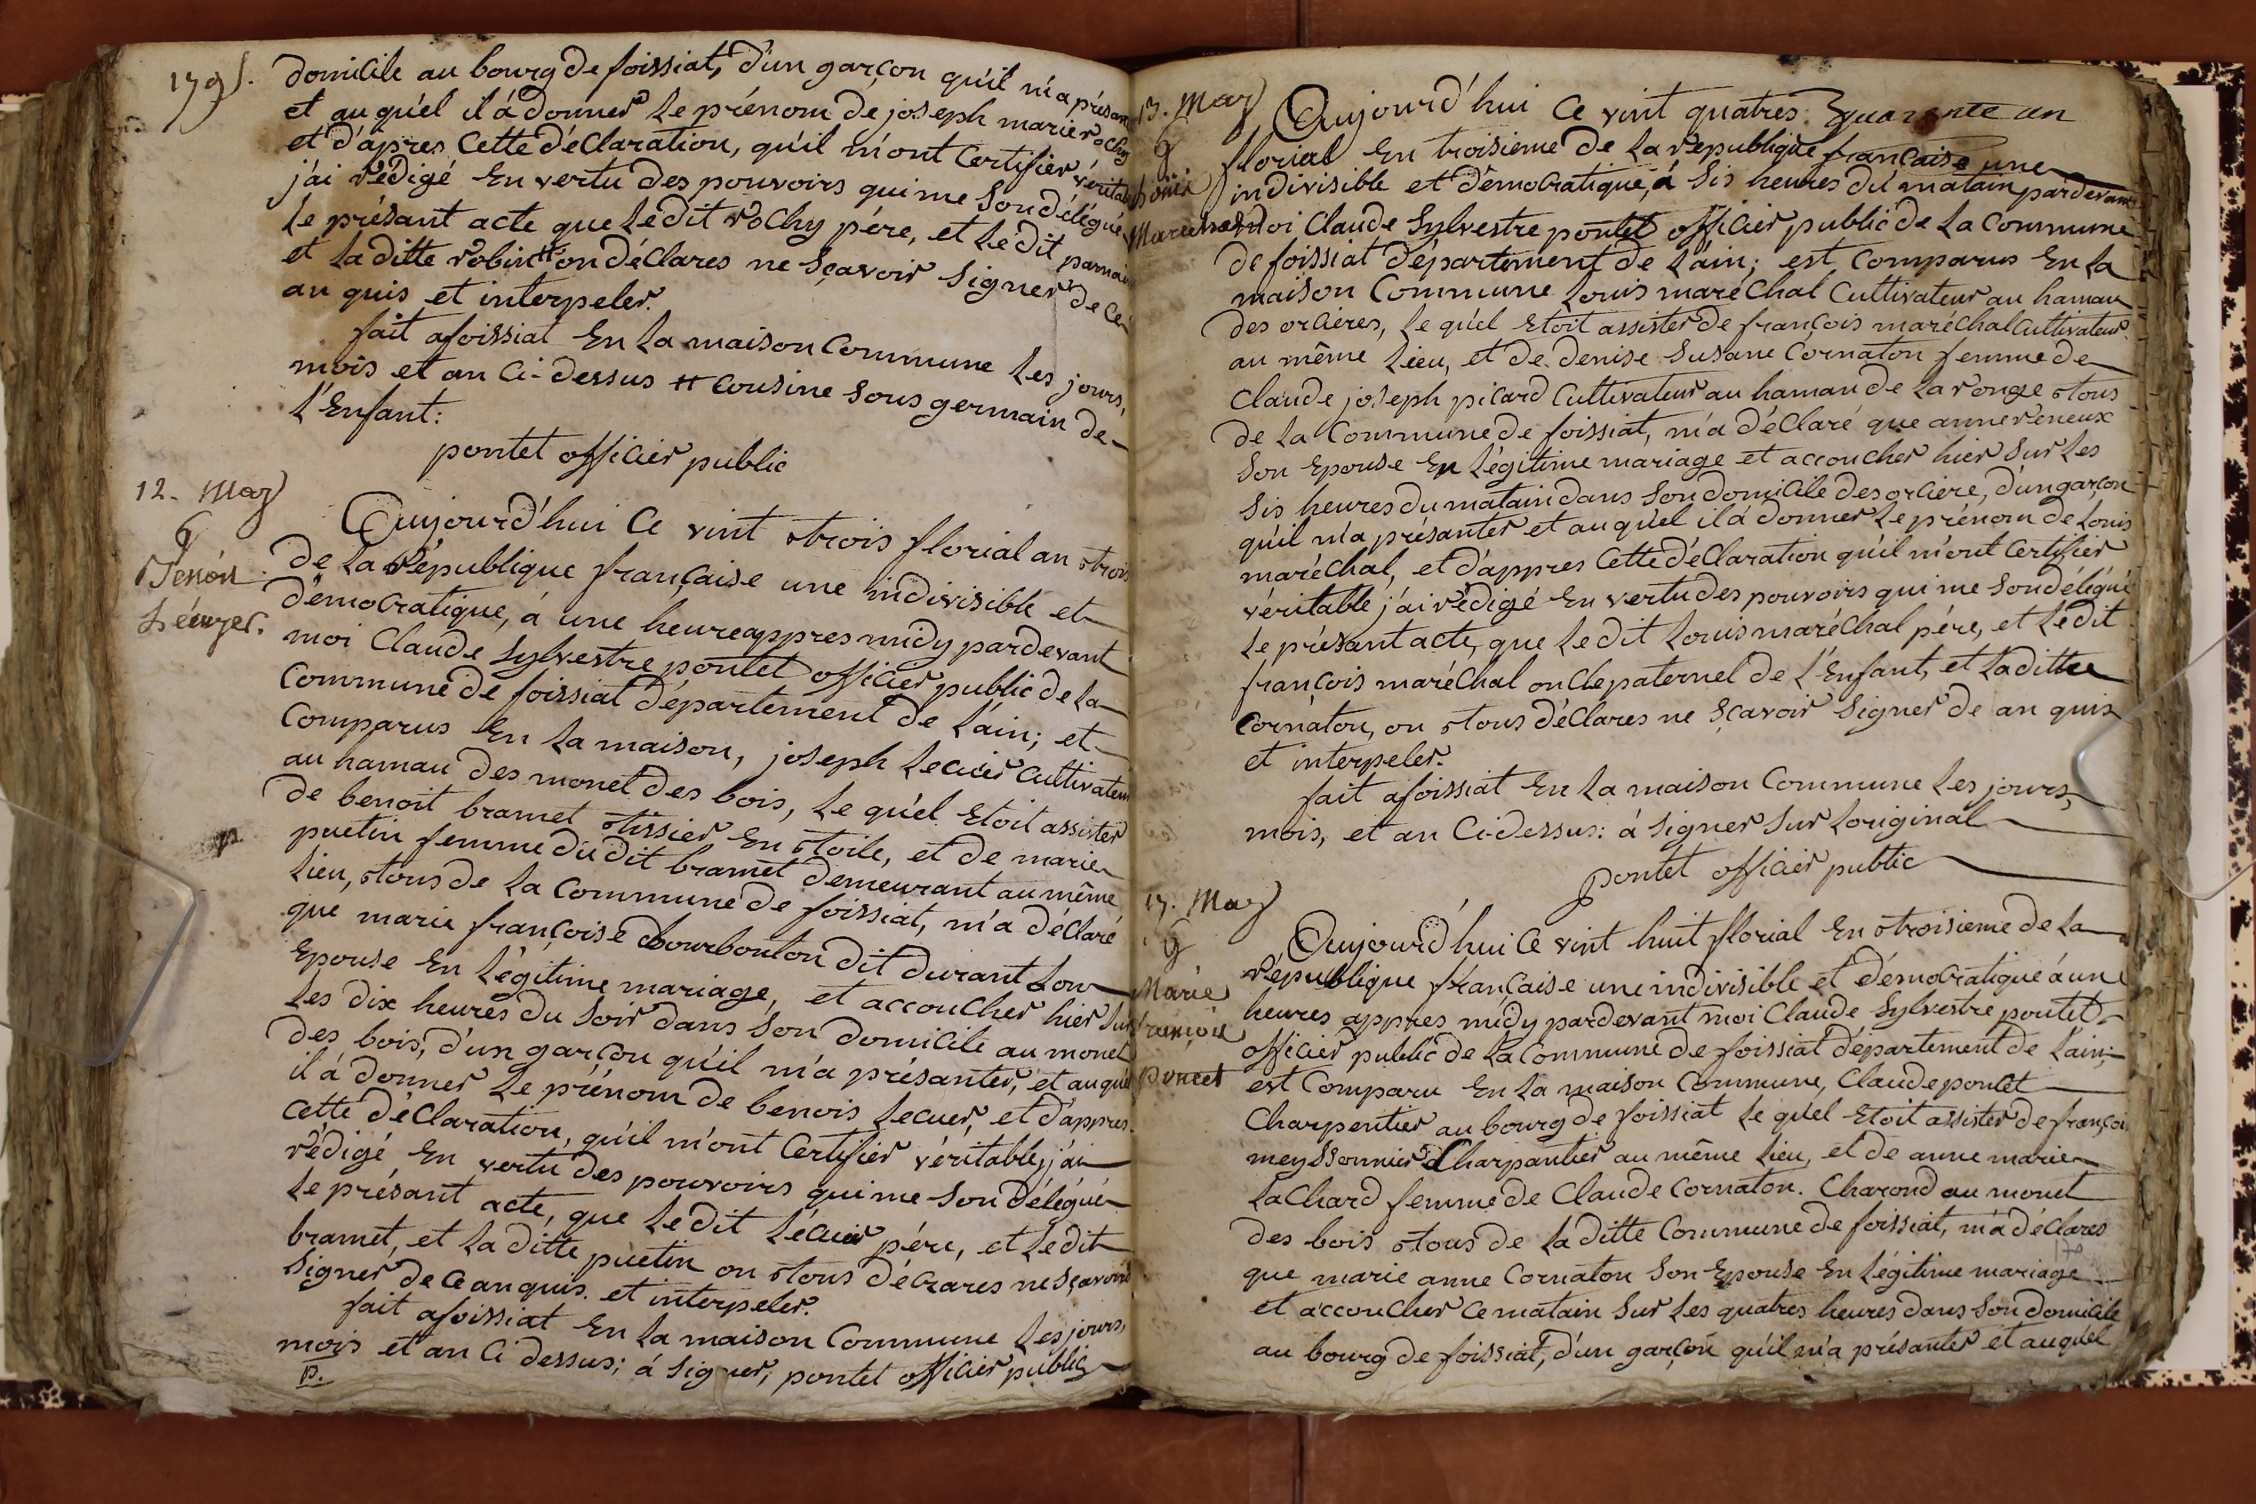 1795.
domicile au bourg de foissiat, d'un garçon qu'il m'a présan
et au qu'el il á donner le prénom de joseph marie rochy
et d'apres Cette déClaration, qu'il m'ont Certifier véritab
j'ai rédigé En vertu des pouvoirs qui me son délégué
le présant acte que ledit rochy pére, et ledit parrain
et la ditte robin # on déClares ne sçavoir signer de ce
an quis et interpeler.
fait a foissiat En la maison Commune les jours,
mois et an Ci-dessus # Cousine sous germain de
l'Enfant:
pontet officier public
12. May
G
Benoit
Lécuyer.
Aujourd'hui Ce vint trois florial an trois
de la république française une indivisible et
démocratique, á une heure appres midy pardevant
moi Claude Sylvestre pontet officier public de la
Commune de foissiat département de l'ain; et
Comparus En la maison, joseph lecuier Cultivateur
au hamau des monet des bois, le qu'el Etoit assister
de benoit bramet tissier En toile, et de marie
puetin femme du dit bramet demeurant au même
lieu, tous de la Commune de foissiat, m'a déClaré
que marie françoise bourbonton dit durant Son
Epouse En légitime mariage, et accoucher hier sur
les dix heures du soir dans son domicile au monet
des bois, d'un garçon qu'il m'a présanter, et au qu'el
il á donner le prénom de benois lecuer, et d'appres
Cette déClaration, qu'il m'ont Certifier véritable, j'ai
rédigé En vertu des pouvoirs qui me son délégué
le présant acte, que ledit lécuier pére, et ledit
bramet, et la ditte puetin on tous déClares ne sçavoir
signer de ce anquis. et interpeler.
fait a foissiat En la maison Commune les jours,
mois et an Ci dessus; á signer, pontet officier public
P.
13. May
G
Louis
Marechal
Aujourd'hui Ce vint quatres Equarente an
florial En troisieme de la république française une
indivisible et démocratique, á sis heures du matain pardevant
moi Claude Sylvestre pontet officier public de la Commune
de foissiat département de l'ain; est Comparus En la
maison Commune Louis maréChal Cultivateur au hamau
des orcieres, le qu'el Etoit assister de françois maréChal Cultivateur
au même lieu, et de denise Susane Cornaton femme de
Claude joseph picard Cultivateur au hamau de la ronge tous
de la Commune de foissiat, m'a déClaré que anne reneux
Son Epouse En légitime mariage et accoucher hier sur les
sis heures du matain dans son domicile des orciere, d'un garçon
qu'il m'a présanter et au qu'el il á donner le prénom de Louis
maréChal, et d'appres Cette déClaration qu'il m'ont Certifier
véritable j'ai rédigé En vertu des pouvoirs qui me son délégué
le présant acte, que ledit Louis maréChal pére, et ledit
françois maréChal oncle paternel de l'Enfant, et la ditte
Cornaton, on tous déClares ne sçavoir signer de an quis
et interpeler.
fait a foissiat En la maison Commune les jours,
mois, et an Ci-dessus: á signer sur loriginal
pontet officier public
17. May
G
Marie
françoise
Poncet
Aujourd'hui Ce vint huit florial En troisieme de la
république française une indivisible et démocratique á une
heures appres midy pardevant moi Claude Sylvestre pontet
officier public de la Commune de foissiat département de l'ain;
est Comparu En la maison Commune, Claude pontet
Charpentier au bourg de foissiat le qu'el Etoit assister de françois
meyssonnier Charpantier au même lieu, et de anne marie
la Chard femme de Claude Cornaton. Charond au monet
des bois tous de la ditte Commune de foissiat, m'a déClares
que marie anne Cornaton son Epouse En légitime mariage
et accoucher ce matain sur les quatres heures dans son domicile
au bourg de foissiat, d'un garçon qu'il m'a présanter et au qu'el